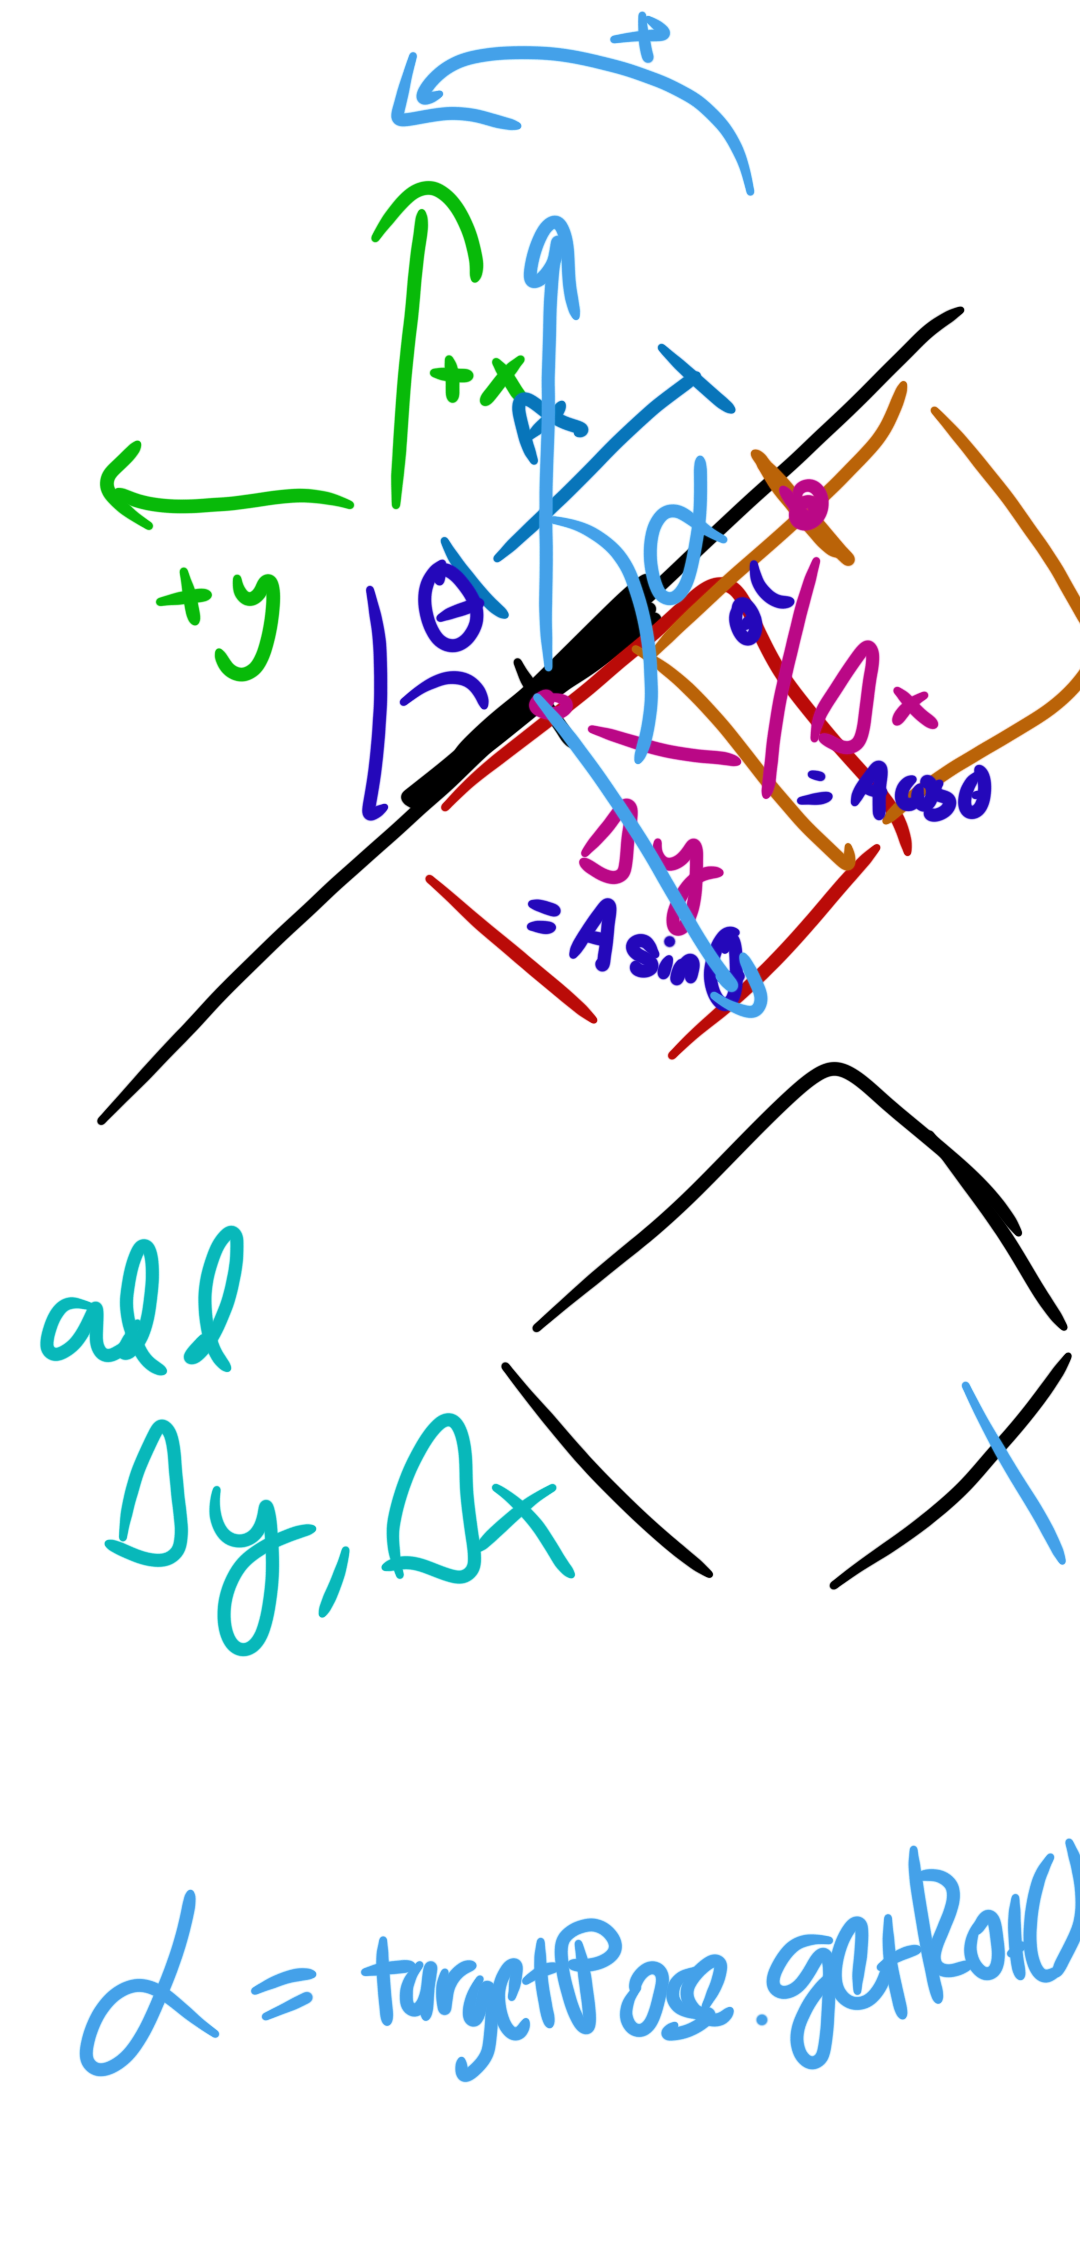 +
+x
A
+y
θ
α
θ
Δx
= A cos θ
Δy
= A sin θ
all
Δy, Δx
α = targetPose.getRot()